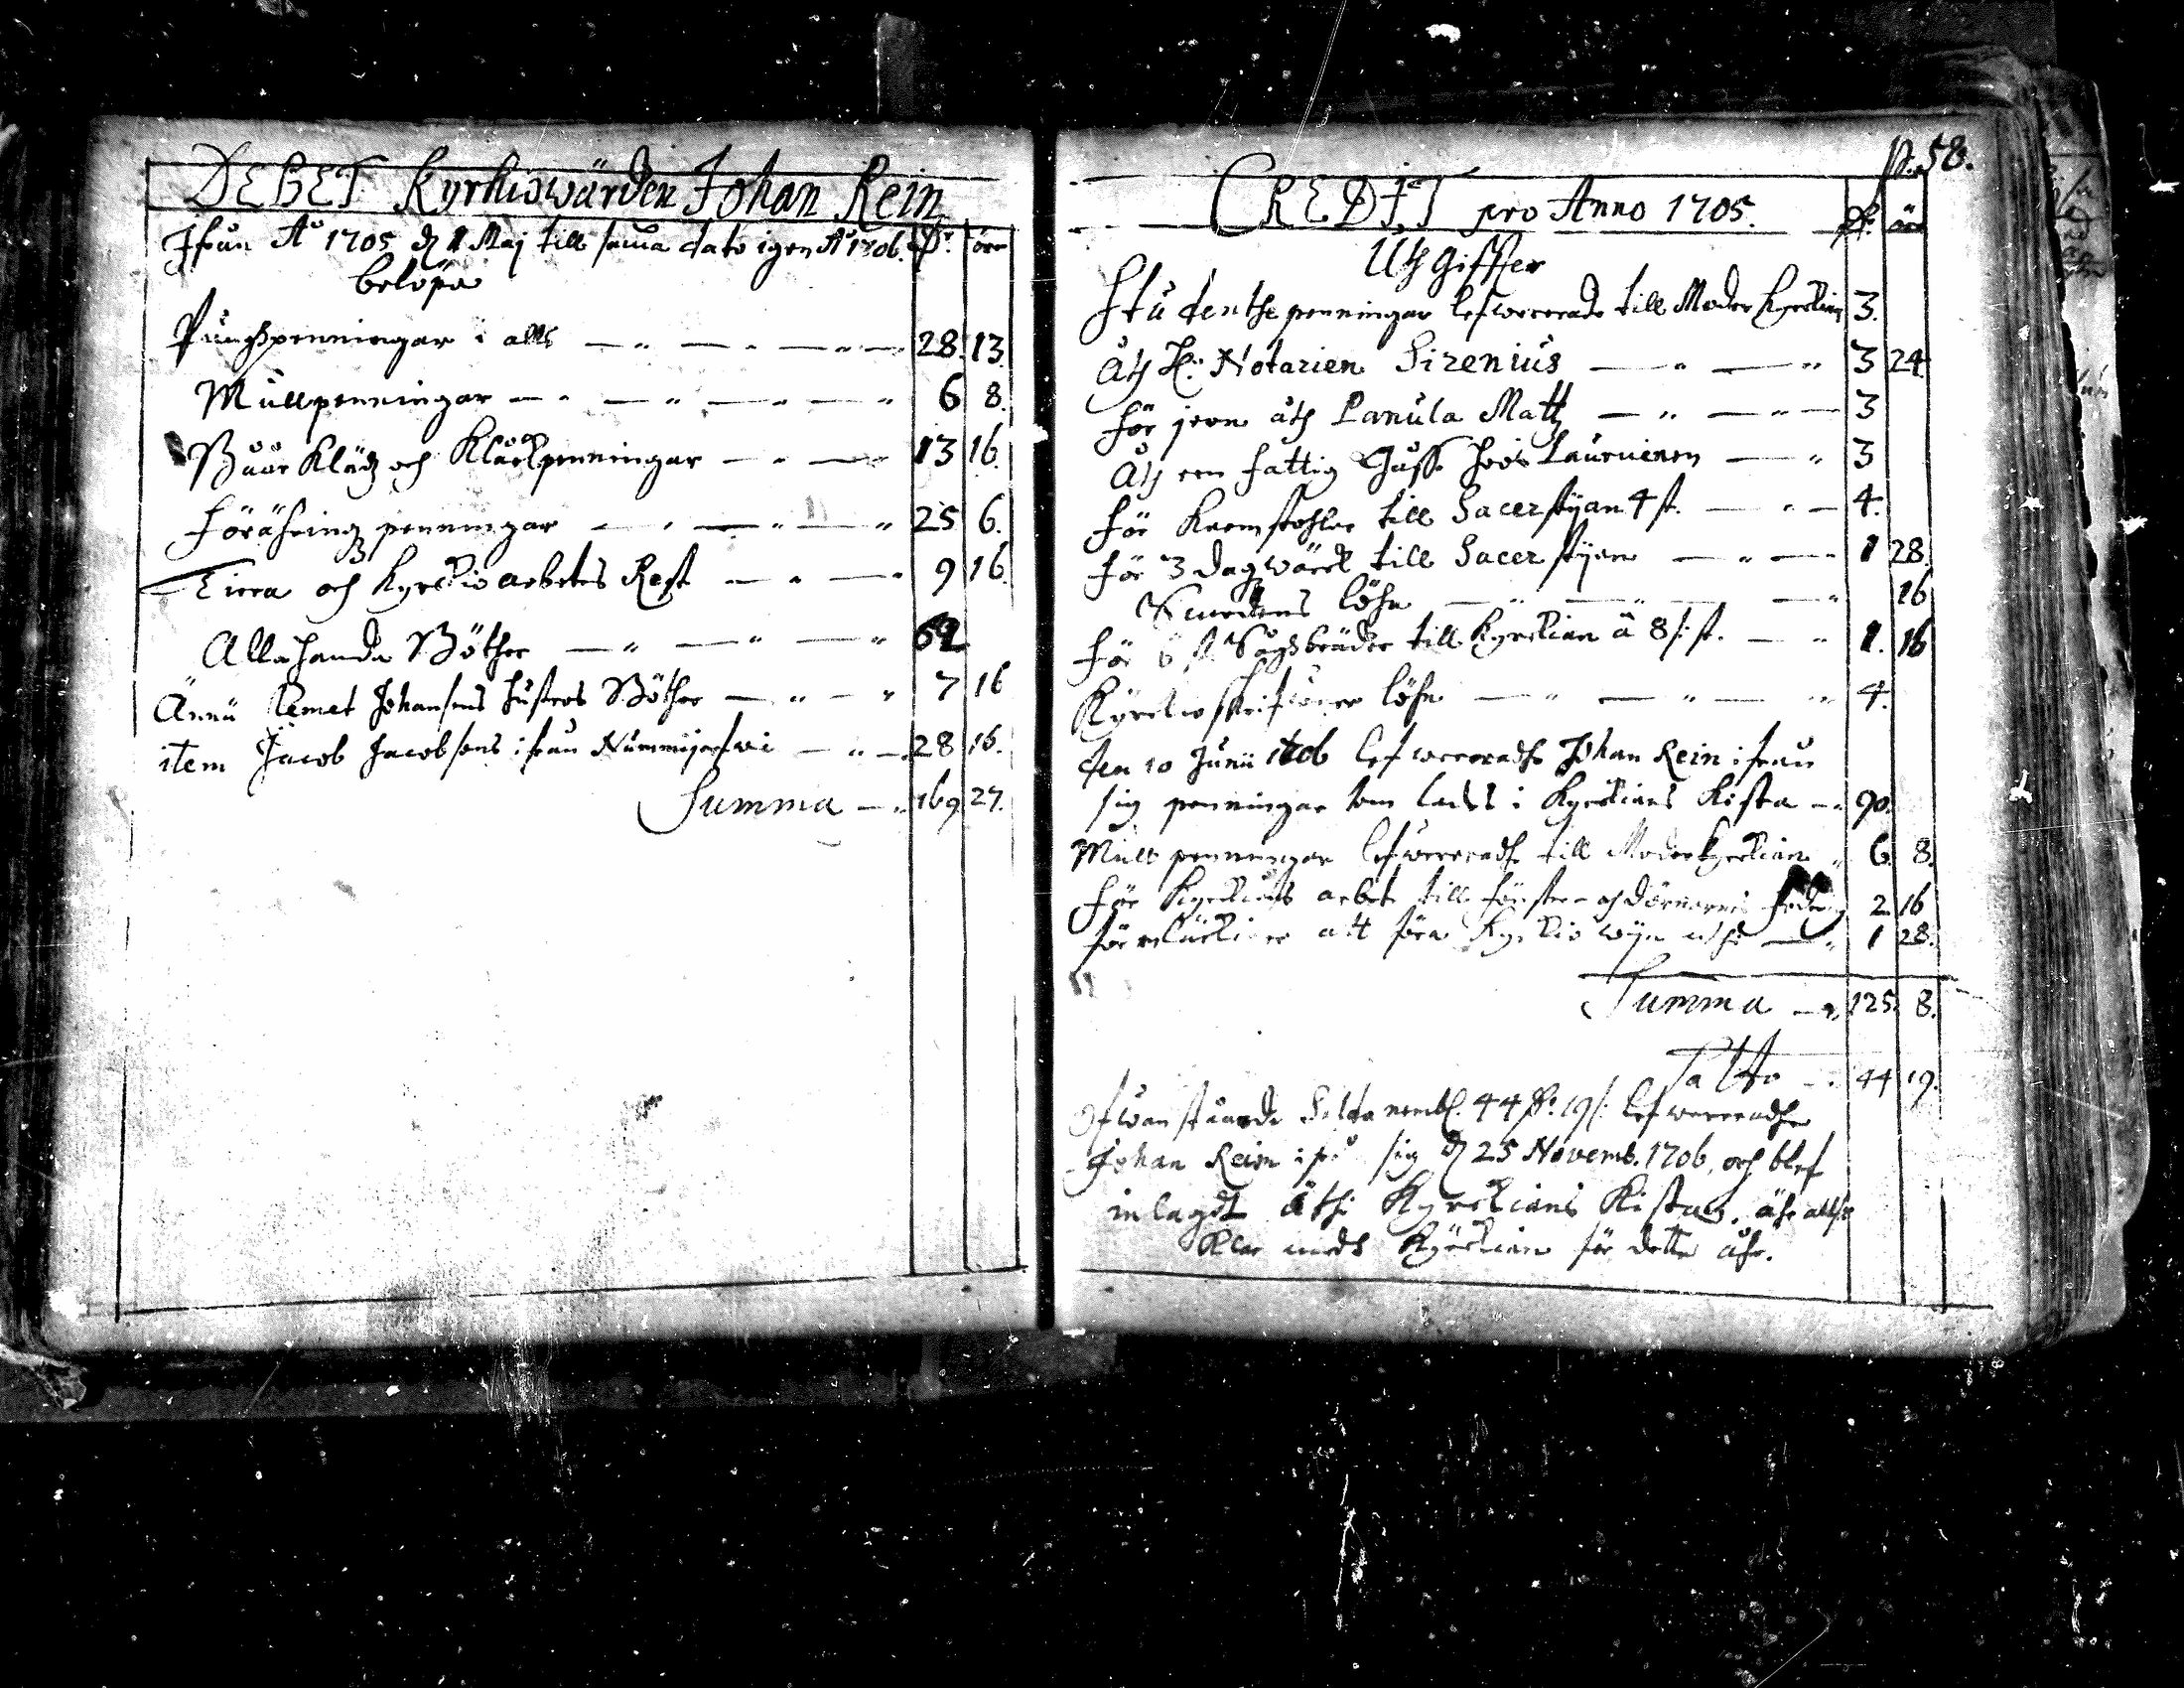 DEBET Kyrkiowärden Johan Rein
Ifrån A° 1705 d 1 Maj till sama dato igen A° 1706. Dr. öre
belöpa
Pungspenningar i allt 28. 13.
Mullpenningar 6 8.
Båår Kläd och Klåckpenningar 13 16.
Föräringz penningar 25 6.
Tiera och Kyrckio arbetes Rest 9 16.
Allahanda Böther
Ännu Clemet Johansons hustros Böther 7 16
item Jacob Jacobsons ifrån Nummijerfwi 28 16.
Summa 169. 27.
p. 58.
CREDIT pro Anno 1705. Dr. öre
Uthgiffter
Studenthe penningar lefwererade till Moder Kyrckian 3.
Åth H: Notarien Sirenius 3 24.
för jern åth Panula Matz 3
Åth een fattig Gusse hoos Lauruinen 3
för Karmstohlar till Sacerstijan 4 st. 4.
för 3 dagzwärck till Sacerstijan 1 28.
Smedens löhn 16
för 6 st Sågsbräder till Kyrckian á 8 /: st. 1. 16
Kyrckioskrifware löhn 4.
den 10 Junii 1706 lefwereradhe Johan Rein ifrån
sig penningar som lades i Kyrckians Kista 90.
Mull penningar lefwereradhe till Moderkyrckian 6. 8.
för Kyrckians arbete till fönster och dörrarnes 2. 16
för att föra Kyrckio wijn 1 28.
Summa 125. 8.
Saldo 44 19.
Ofwanstående Saldo nembl. 44 Dr. 19 /: lefwereradhe
Johan Rein ifrå sig d 25 Novemb. 1706, och blef
inlagdt uthi Kyrckians Kista, är altså
klar medh Kyrckian för detta åhr.